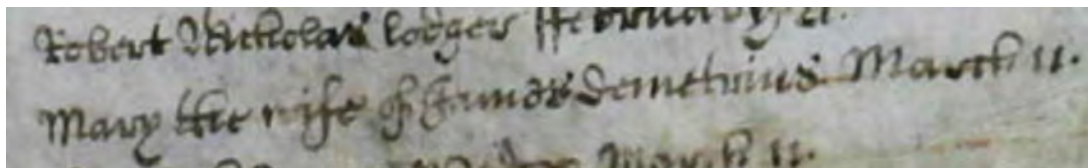 Robert Nickolas lodger ffebruary 21.
Mary the wife of James demetrius March 11.
March 11.